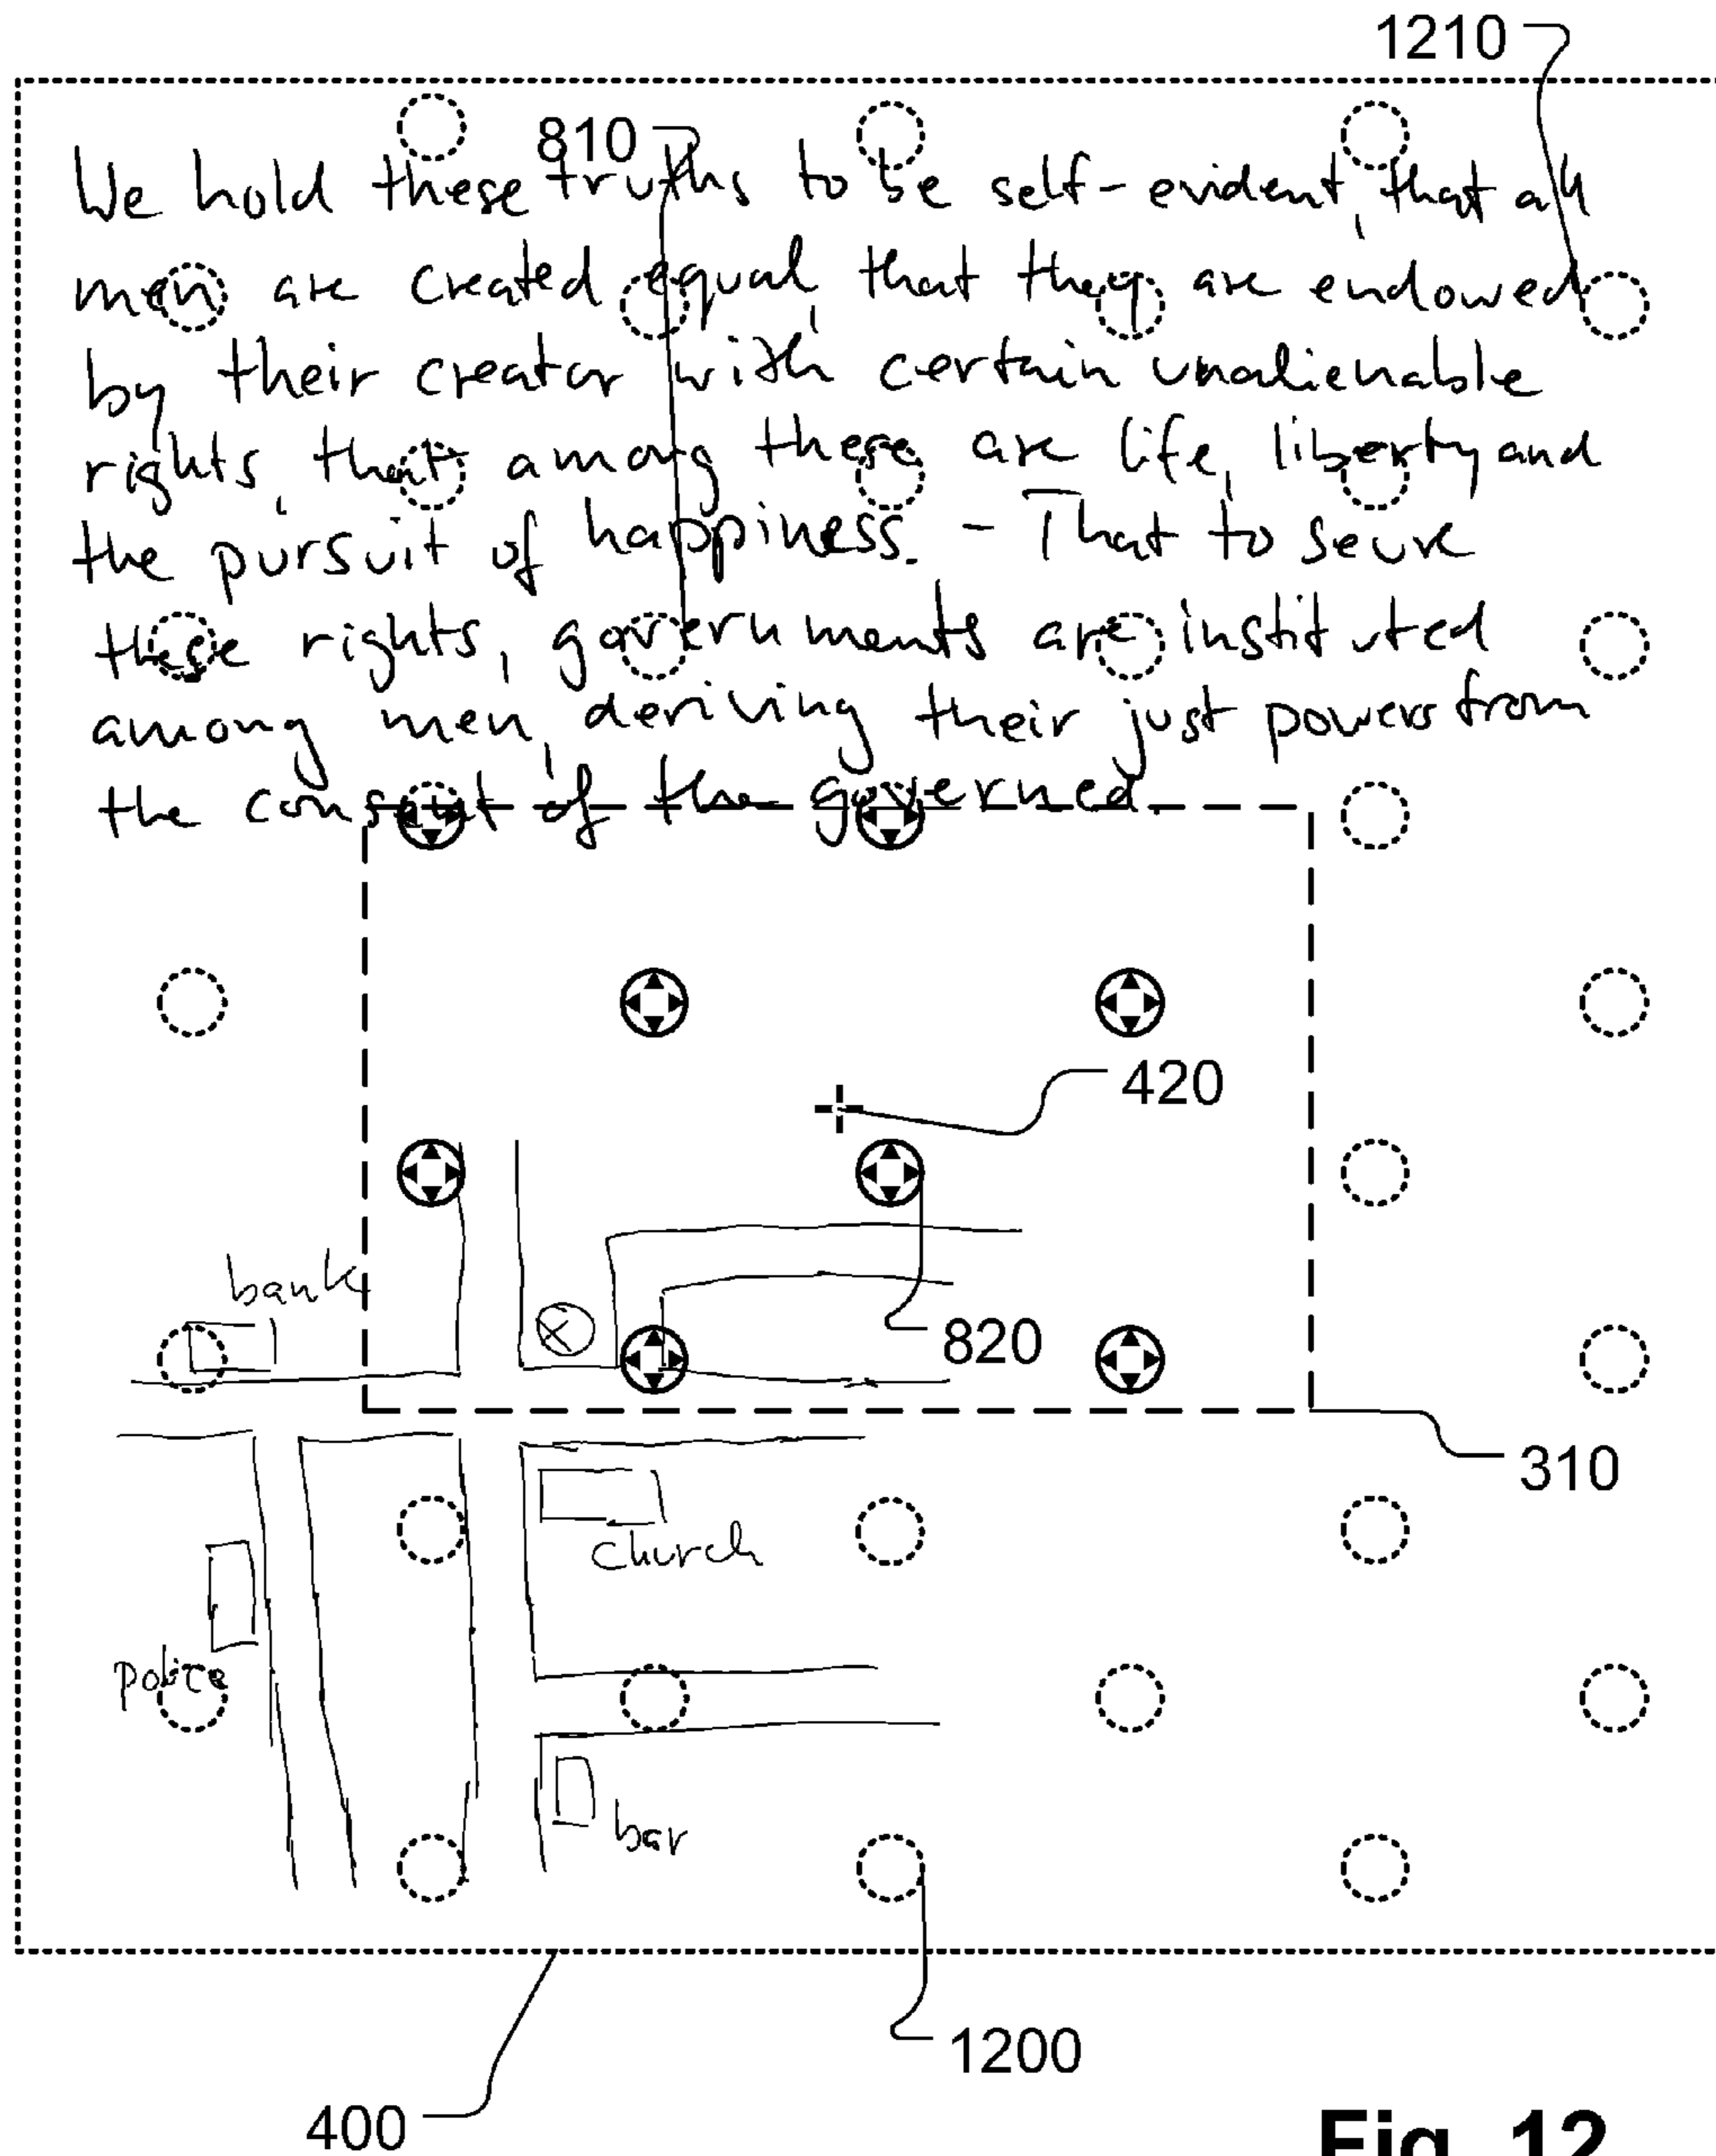 1210
810
We hold these truths to be self-evident, that all
men are created equal, that they are endowed
by their creator with certain unalienable
rights, that among these are life, liberty and
the pursuit of happiness. - That to secure
these rights, governments are instituted
among men, deriving their just powers from
the consent of the governed.
420
bank
820
310
church
police
bar
1200
400
Fig. 12